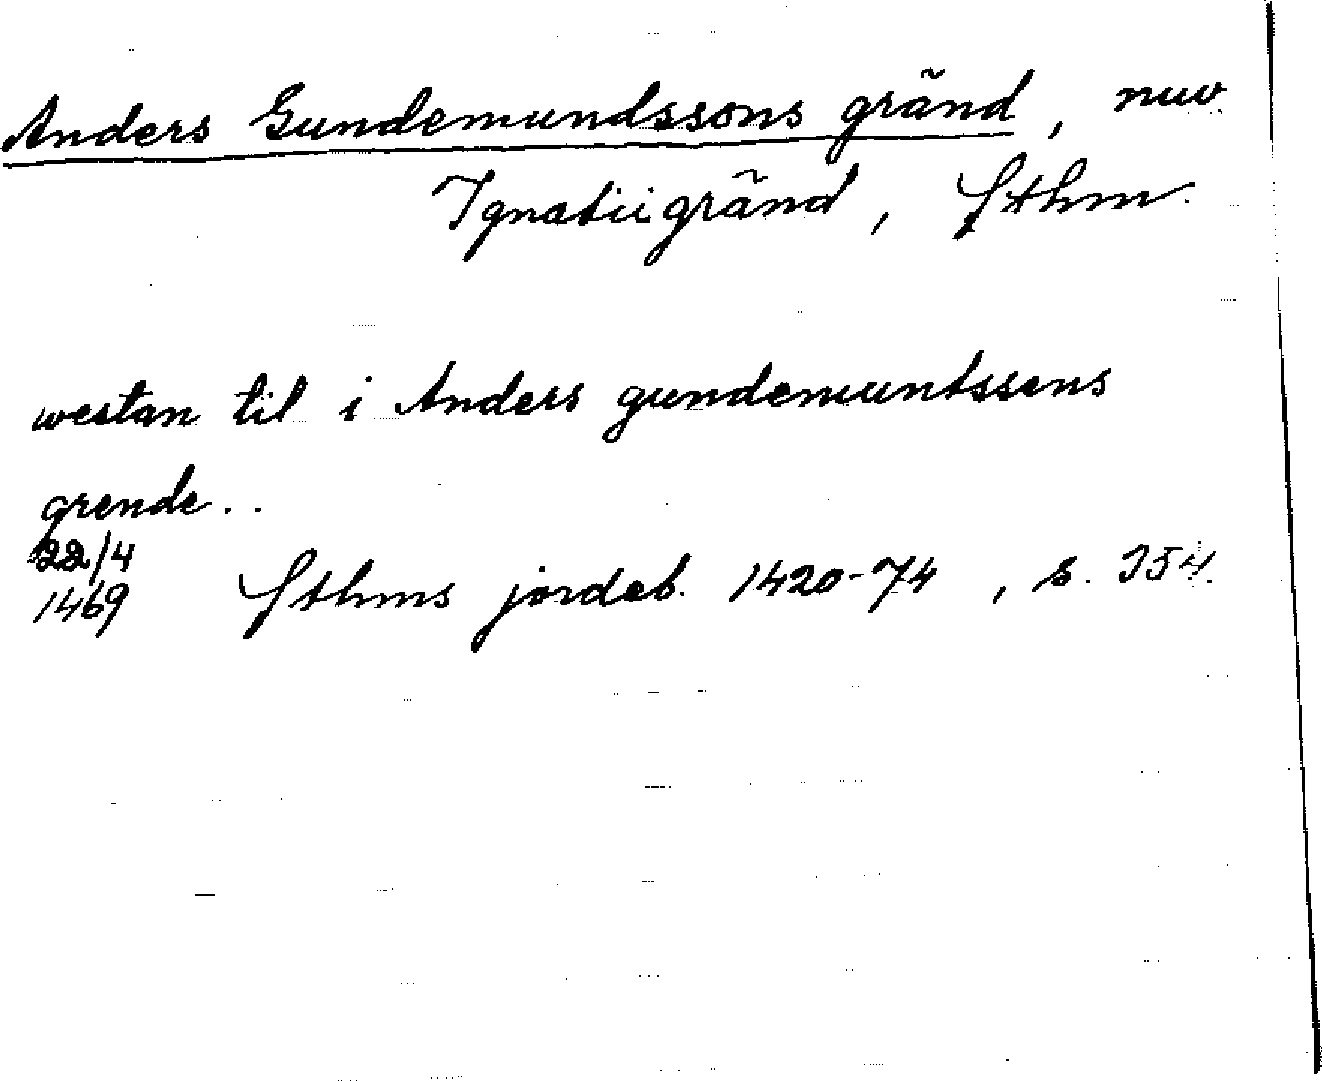 Anders Gundemundssons gränd, nuv.
Ignatiigränd, Sthm.
westan til i Anders gundemuntssens
grende..
22/4
1469 Sthms jordeb. 1420-74, s. 354.